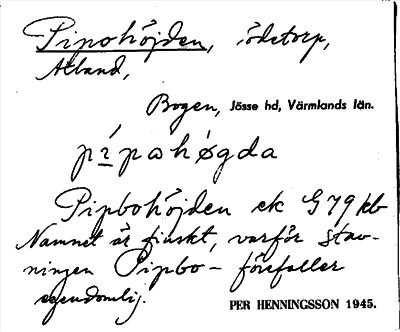 Pipohöjden, ödetorp,
Älband,
Bogen, Jösse hd, Värmlands län.
pípahøgda
Pipbohöjden ek G 79 kb
Namnet är finskt, varför stav-
ningen Pipbo- förefaller
egendomlig.
PER HENNINGSSON 1945.